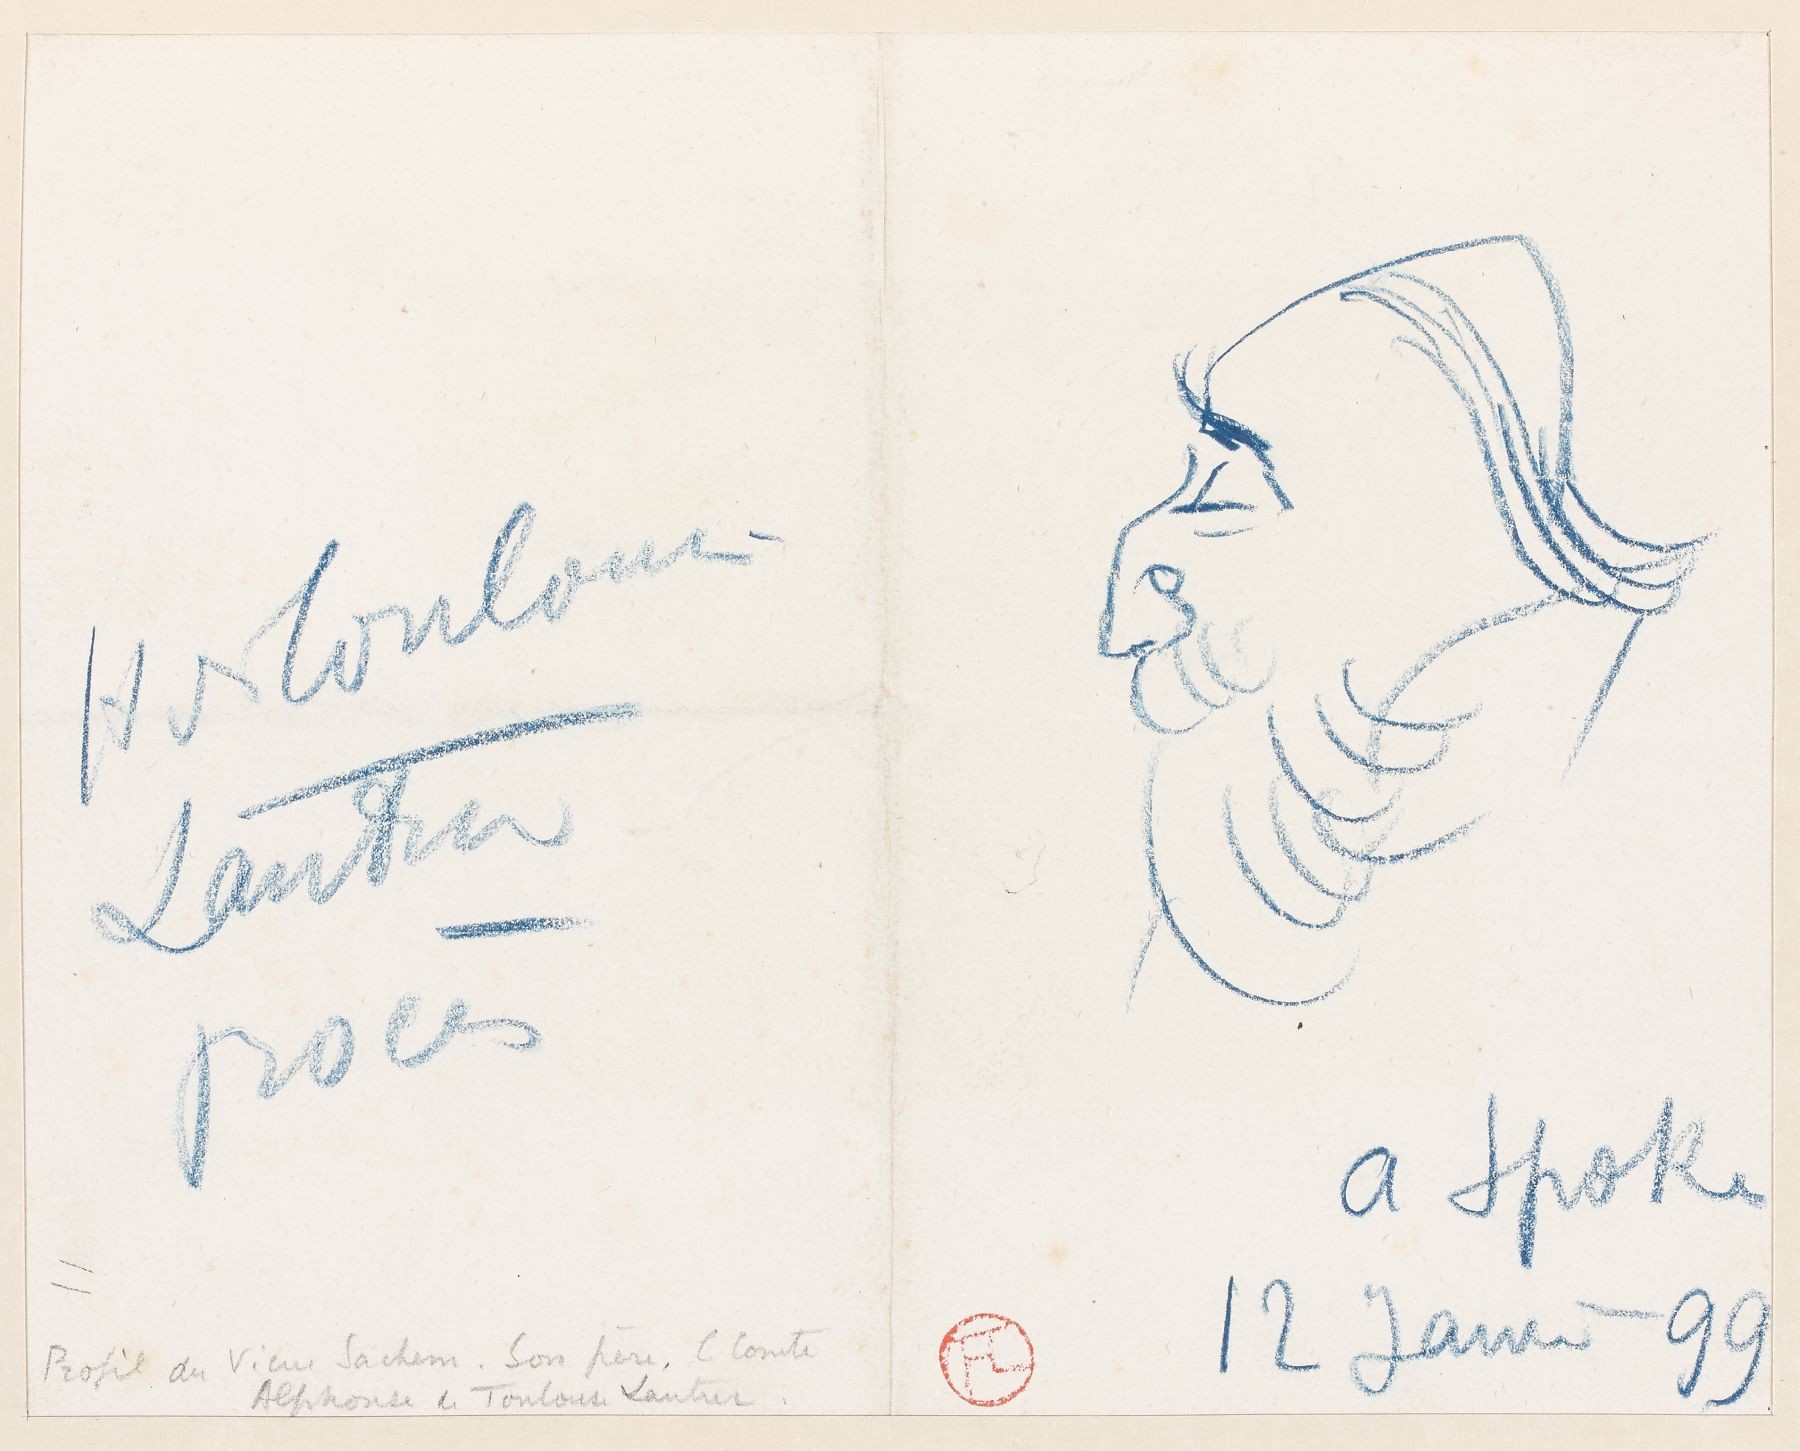 H de Toulouse
Lautrec
proces
a Spoke
12 Janvier 99
Profil du Vieux Sachem. Son père. Le Comte
Alphonse de Toulouse Lautrec.